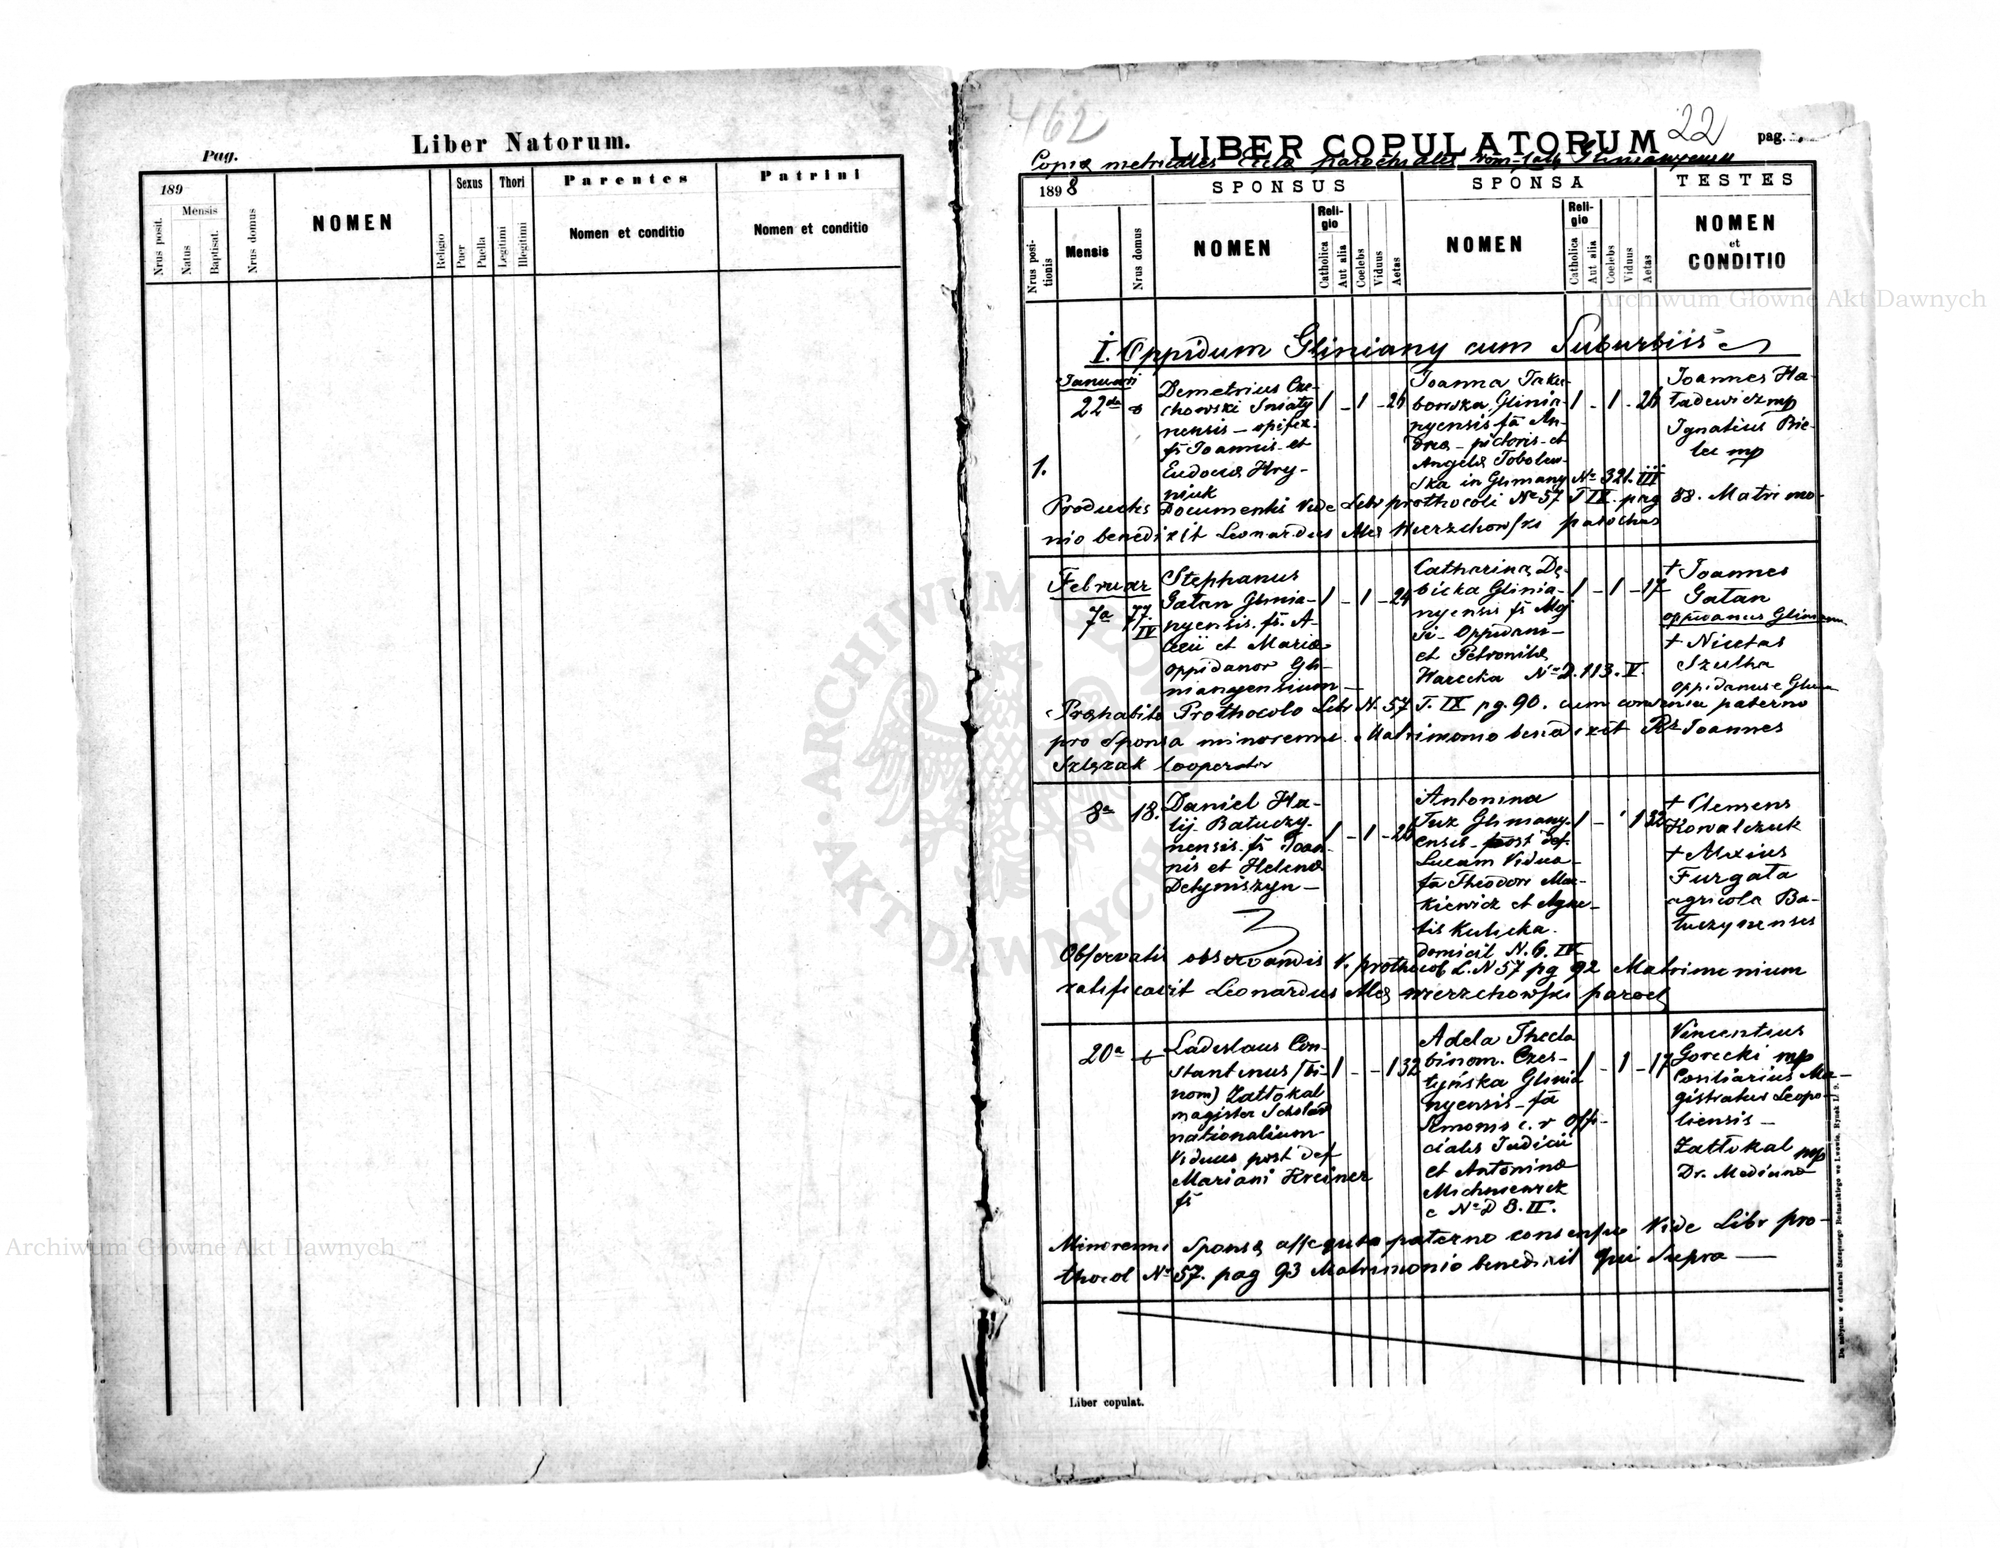 Liber Natorum.
Pag.
189
Mensis
Nrus posit.
Natus
Baptisat.
Nrus domus
NOMEN
Religio
Sexus
Puer
Puella
Thori
Legitimi
Illegitimi
Parentes
Nomen et conditio
Patrini
Nomen et conditio
462
LIBER COPULATORUM
22
pag.
Copia metricales parochialis rom.
1898
SPONSUS
SPONSA
TESTES
Nrus positionis
Mensis
Nrus domus
NOMEN
Religio
Catholica
Aut alia
Coelebs
Viduus
Aetas
NOMEN
Religio
Catholica
Aut alia
Coelebs
Viduus
Aetas
NOMEN
et
CONDITIO
I. Oppidum Gliniany cum Suburbiis
1.
Januarii
22da
Demetrius Cze-
chowski Sniaty
nensis - opifex
fs Joannis et
Eudociæ Hry-
niuk
1 - 1 -
Joanna Jaku-
bowska Glinia-
nyensis fa An-
dreæ - pictoris - et
Angelæ Tobolew-
ska in Gliniany No 321. III
1 - 1 -
Joannes Ha-
ladewicz mp
Ignatius Bie-
lec mp
Productis Documentis Vide Libr prothocoli No 57 T IX. pag 88. Matrimo-
nio benedixit Leonardus Alex Wierzchowski parochus
Februar
7a
77
IV
Stephanus
Gatan Glinia-
nyensis. fs. A-
et Mariæ
oppidanor Gli-
nianyensium -
1 - 1 - 24
Catharina Dę-
bicka Glinia-
nyensis
Oppidani
et Petronilæ
Harecka No D. 113. V.
1 - 1 - 17
+ Joannes
Gatan
oppidanus
+ Nicetas
Szulha
oppidanus
Præhabito Prothocolo Libr N. 57 T. IX pg. 90. cum consensu paterno
pro Sponsa minorenni. Matrimonio benedixit Rs Joannes
Szlęzak Cooperator
8a
18.
Daniel Ha-
lij Batuczy-
nensis. fs Joan-
nis et Helenæ
Detyniszyn -
1 - 1 -
Antonina
Tuz Gliniany-
ensis - post def.
Lucam Vidua -
fa Theodori Mac-
kiewicz et Agne-
tis Kulicka.
domicil N. 6. IV
1 - 1 32
+ Clemens
Kowalczuk
+ Alexius
Furgata
agricola Ba-
tuczynenses
Observatis observandis V. prothocol L. N 57 pg 92 Matrimonium
ratificavit Leonardus Alex Wierzchowski paroch
20a
Ladislaus Con-
stantinus (bi-
nom) Zattokal
magister Scholar
nationalium
Viduus post def
Mariani Kreiner
fs
1 - - 1 32
Adela Thecla
binom. Czes-
tyńska Glinia
nyensis - fa
Simonis c. r Offi-
cialis Judicii
et Antoninæ
Michniewicz
e No D 8. II.
1 - 1 - 17
Vincentius
Gorecki mp
Consiliarius Ma-
gistratus Leopo-
liensis -
Zattokal mp
Dr. Medicinæ
Minorenni Sponsa assecuta paterno consensu Vide Libr pro-
thocol No 57. pag 93 Matrimonio benedixit qui Supra
Liber copulat.
Archiwum Główne Akt Dawnych
Archiwum Główne Akt Dawnych
ARCHIWUM GŁÓWNE AKT DAWNYCH